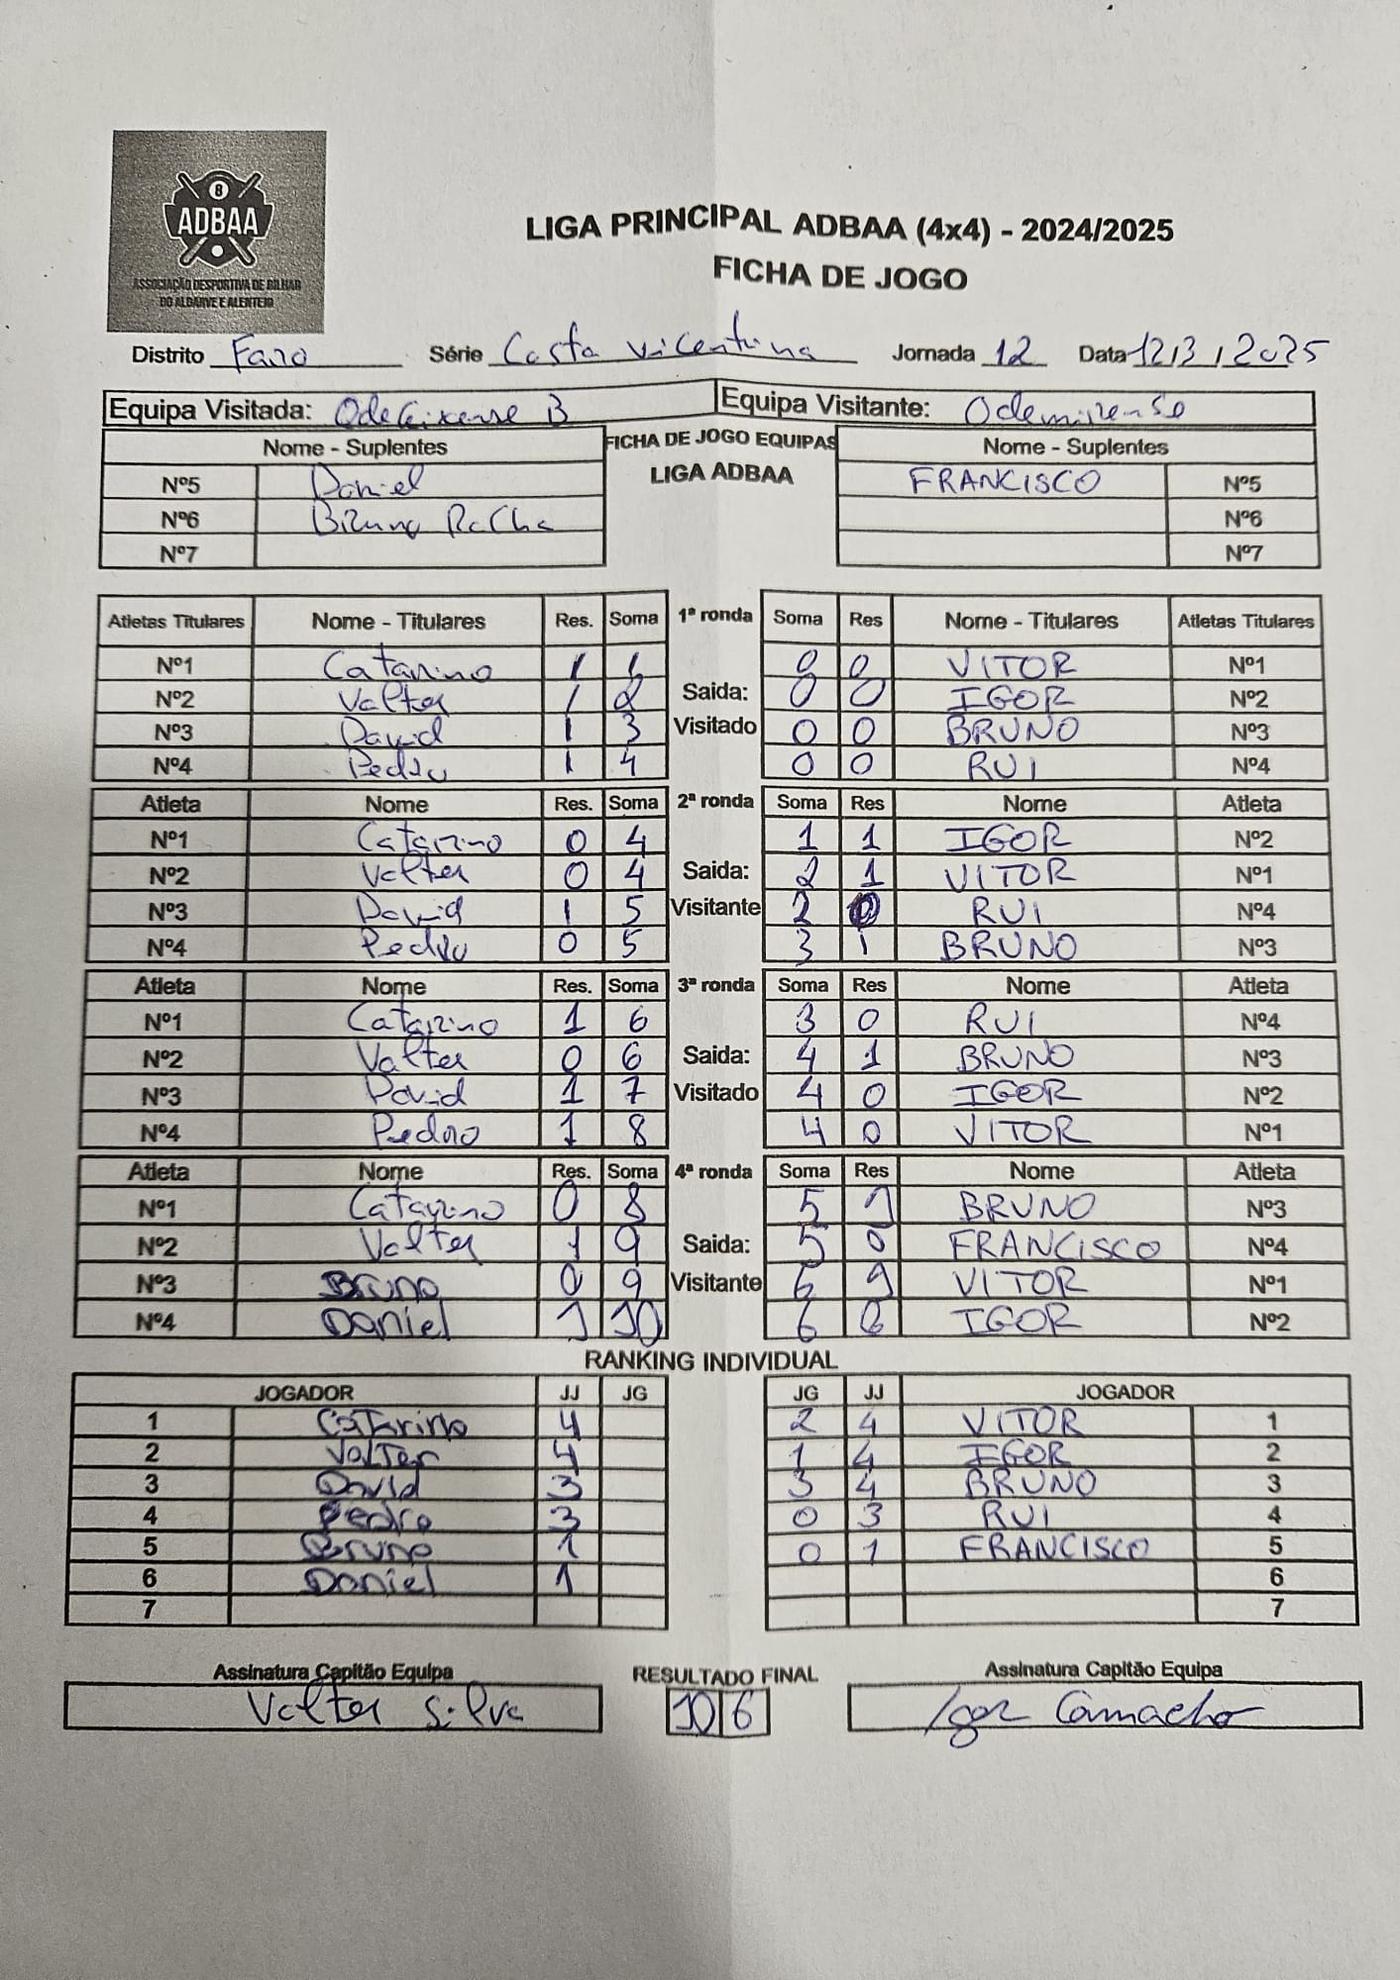 8
ADBAA
ASSOCIAÇÃO DESPORTIVA DE BILHAR
DO ALGARVE E ALENTEJO
LIGA PRINCIPAL ADBAA (4x4) - 2024/2025
FICHA DE JOGO
Distrito Faro Série Costa Vicentina Jornada 12 Data 12/3/2025
Equipa Visitada: Odeceixense B Equipa Visitante: Odemirense
Nome - Suplentes FICHA DE JOGO EQUIPAS Nome - Suplentes
LIGA ADBAA
Nº5 Daniel FRANCISCO Nº5
Nº6 Bruno Rocha Nº6
Nº7 Nº7
Atletas Titulares Nome - Titulares Res. Soma 1ª ronda Soma Res Nome - Titulares Atletas Titulares
Nº1 Catarino 1 1 0 0 VITOR Nº1
Nº2 Valter 1 2 Saida: 0 0 IGOR Nº2
Nº3 David 1 3 Visitado 0 0 BRUNO Nº3
Nº4 Pedro 1 4 0 0 RUI Nº4
Atleta Nome Res. Soma 2ª ronda Soma Res Nome Atleta
Nº1 Catarino 0 4 1 1 IGOR Nº2
Nº2 Valter 0 4 Saida: 2 1 VITOR Nº1
Nº3 David 1 5 Visitante 2 0 RUI Nº4
Nº4 Pedro 0 5 3 1 BRUNO Nº3
Atleta Nome Res. Soma 3ª ronda Soma Res Nome Atleta
Nº1 Catarino 1 6 3 0 RUI Nº4
Nº2 Valter 0 6 Saida: 4 1 BRUNO Nº3
Nº3 David 1 7 Visitado 4 0 IGOR Nº2
Nº4 Pedro 1 8 4 0 VITOR Nº1
Atleta Nome Res. Soma 4ª ronda Soma Res Nome Atleta
Nº1 Catarino 0 8 5 1 BRUNO Nº3
Nº2 Valter 1 9 Saida: 5 0 FRANCISCO Nº4
Nº3 Bruno 0 9 Visitante 6 1 VITOR Nº1
Nº4 Daniel 1 10 6 0 IGOR Nº2
RANKING INDIVIDUAL
JOGADOR JJ JG JG JJ JOGADOR
1 Catarino 4 2 4 VITOR 1
2 Valter 4 1 4 IGOR 2
3 David 3 3 4 BRUNO 3
4 Pedro 3 0 3 RUI 4
5 Bruno 1 0 1 FRANCISCO 5
6 Daniel 1 6
7 7
Assinatura Capitão Equipa RESULTADO FINAL Assinatura Capitão Equipa
Valter Silva 10 6 Igor Camacho